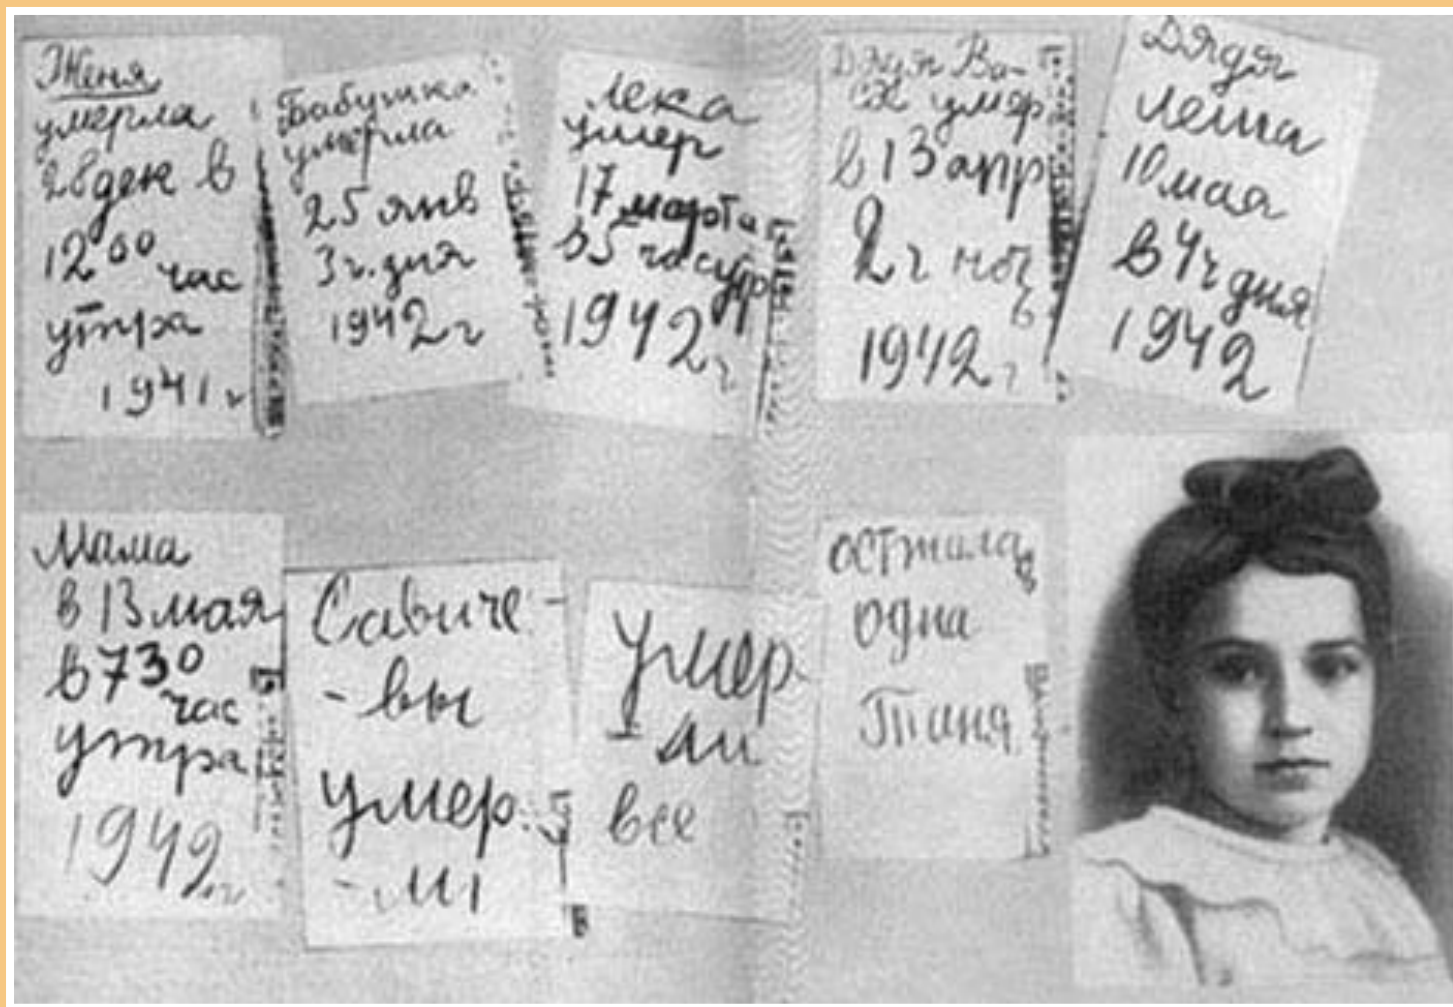 Женя
умерла
28 дек в
12 00 час
утра
1941 г
Бабушка
умерла
25 янв
3 ч. дня
1942 г
Лека
умер
17 марта
в 5 час утр
1942 г
Дядя Ва-
ся умер
в 13 апр
2 ч ноч
ь
1942 г
Дядя
Леша
10 мая
в 4 ч дня
1942
Мама
в 13 мая
в 7 30
час
утра
1942 г
Савиче-
-вы
умер-
-ли
Умер
-ли
все
осталась
одна
Таня